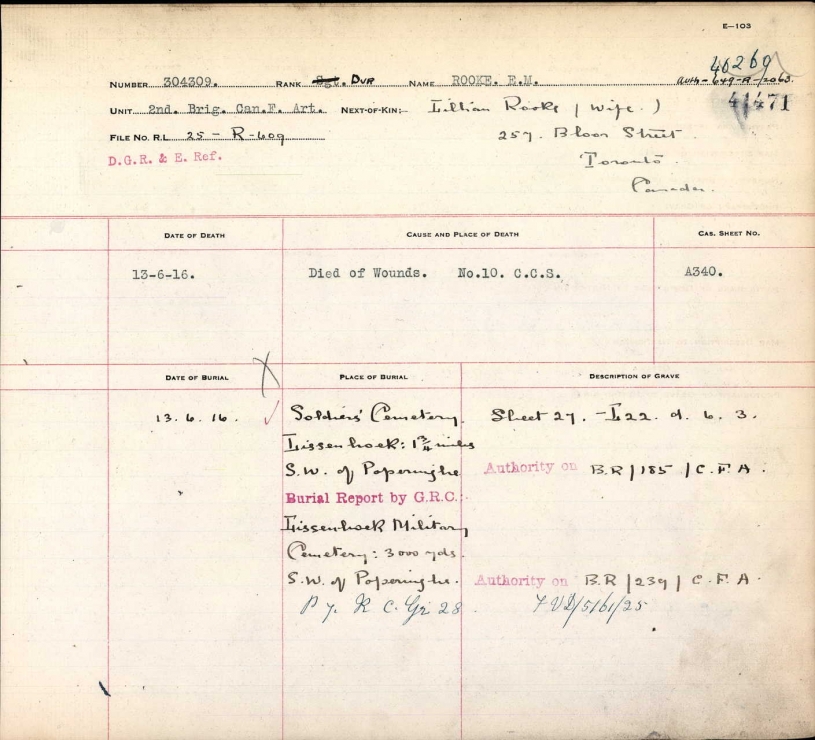 E—103
46269
NUMBER 304309. RANK Sgt. Dvr NAME ROOKE. E.M. Auth-649-R-2063.
41471
UNIT 2nd. Brig. Can.F. Art. NEXT-OF-KIN:- Lillian Rooke (Wife.)
FILE NO. R.L. 25-R-609 257. Bloor Street
D.G.R. & E. Ref. Toronto.
Canada.
DATE OF DEATH CAUSE AND PLACE OF DEATH CAS. SHEET NO.
13-6-16. Died of Wounds. No.10. C.C.S. A340.
DATE OF BURIAL PLACE OF BURIAL DESCRIPTION OF GRAVE
13.6.16. Soldiers' Cemetery. Sheet 27.-L22.d.6.3.
Lissenhoek: 1 3/4 miles
S.W. of Poperinghe Authority on B.R/185/C.F.A.
Burial Report by G.R.C.:-
Lissenhoek Military
Cemetery: 3000 yds.
S.W. of Poperinghe. Authority on B.R/239/C.F.A.
R C. Gr 28